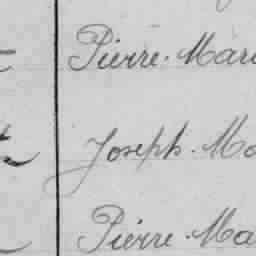 Pierre-Mari
Joseph-Ma
Pierre-Ma